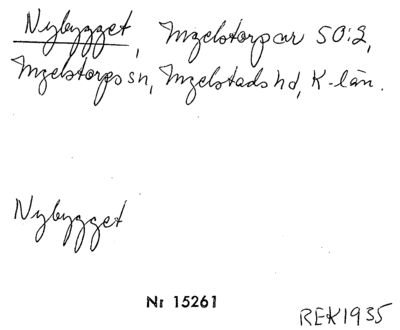 Nybygget, Ingelstorp ar 50:2,
Ingelstorps sn, Ingelstads hd, K-län.
Nybygget
Nr 15261
REK1935